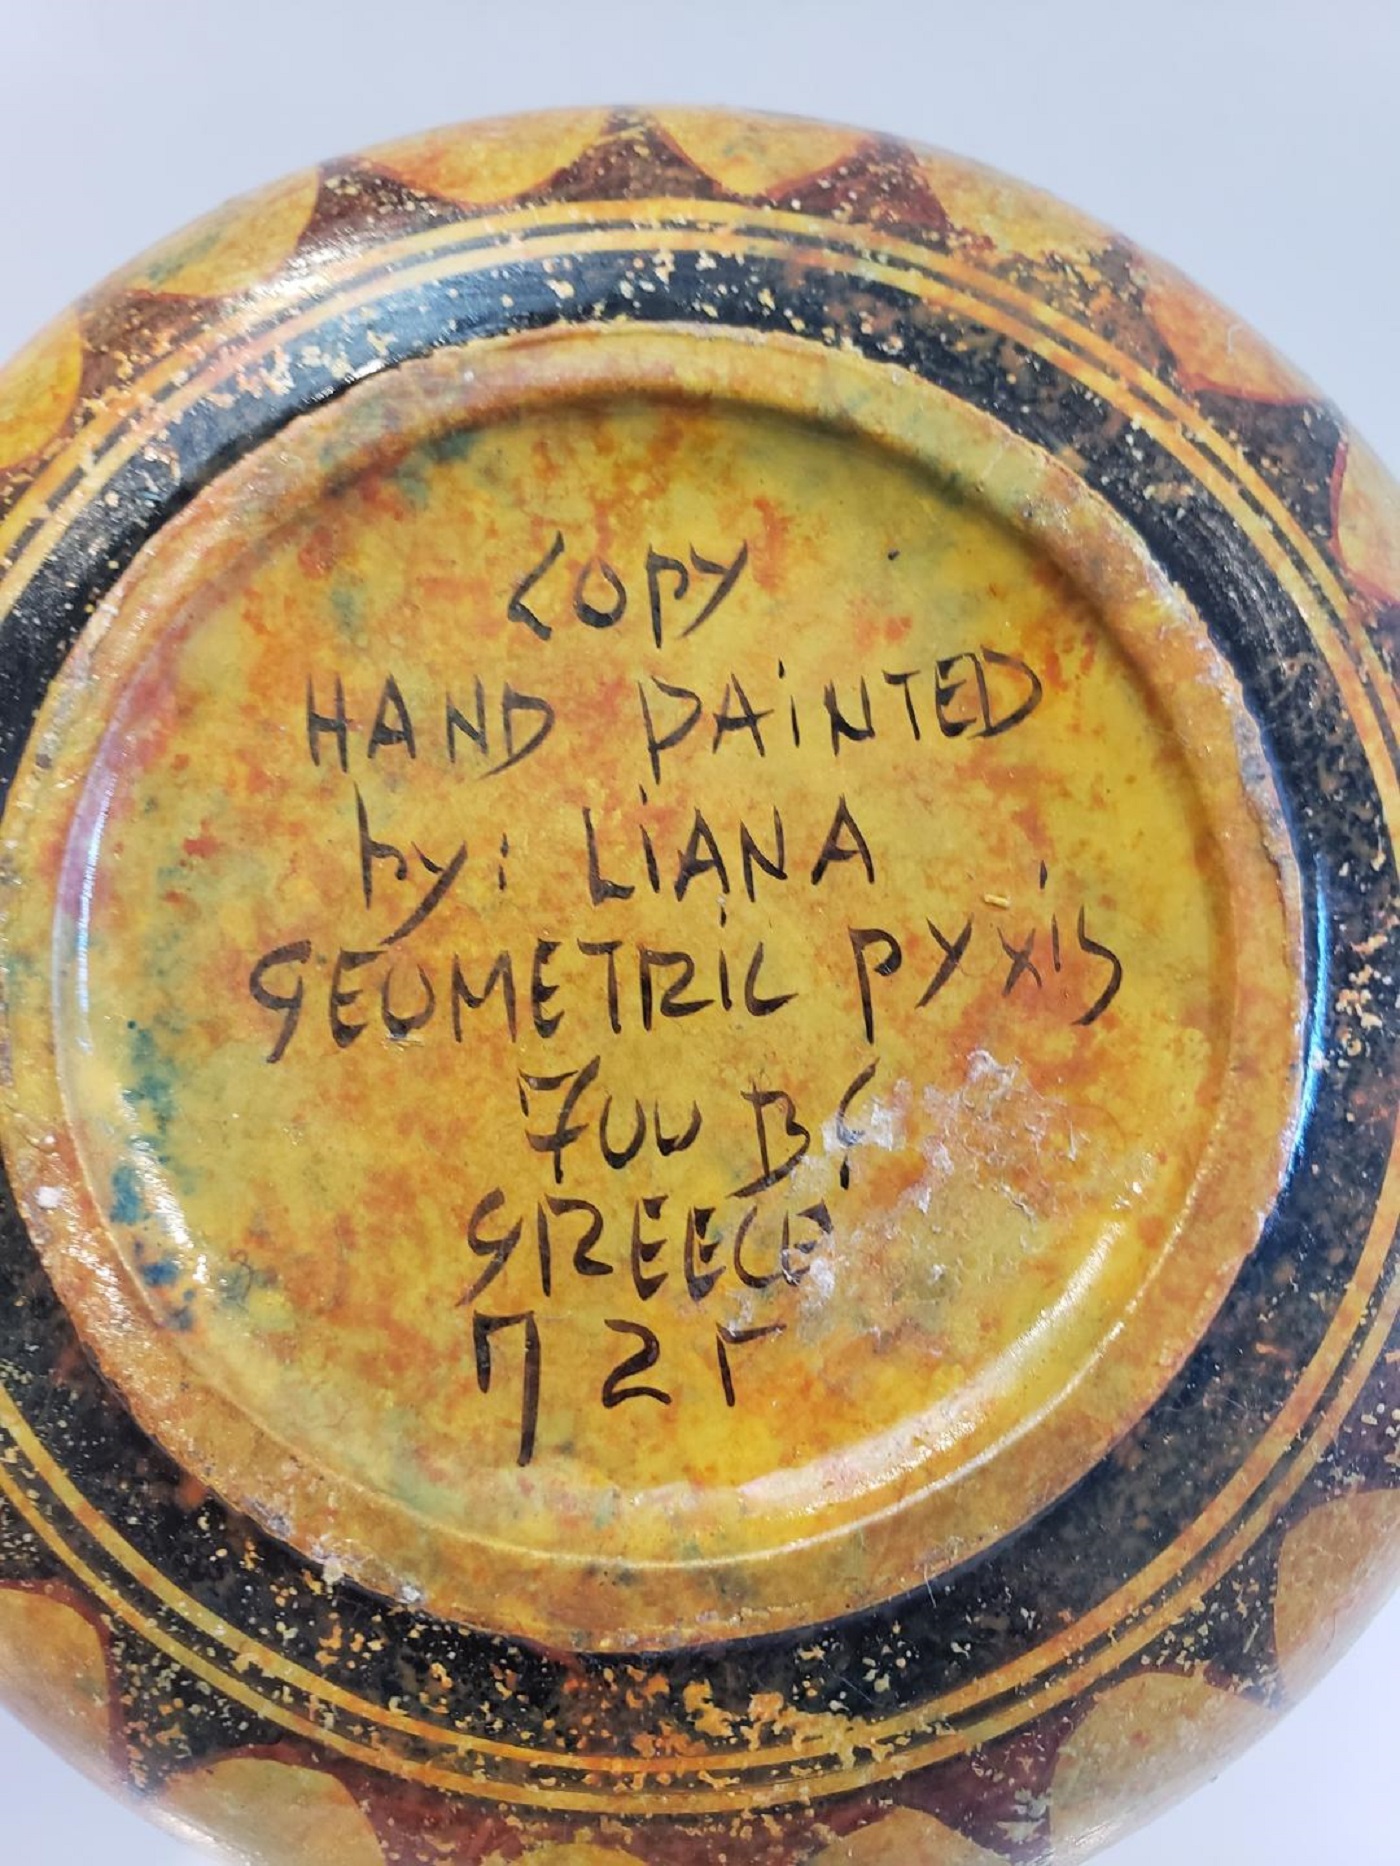 COPY
HAND PAiNTED
by: LiANA
GEOMETRiC PYXiS
700 BC
GREECE
Π 2 Γ